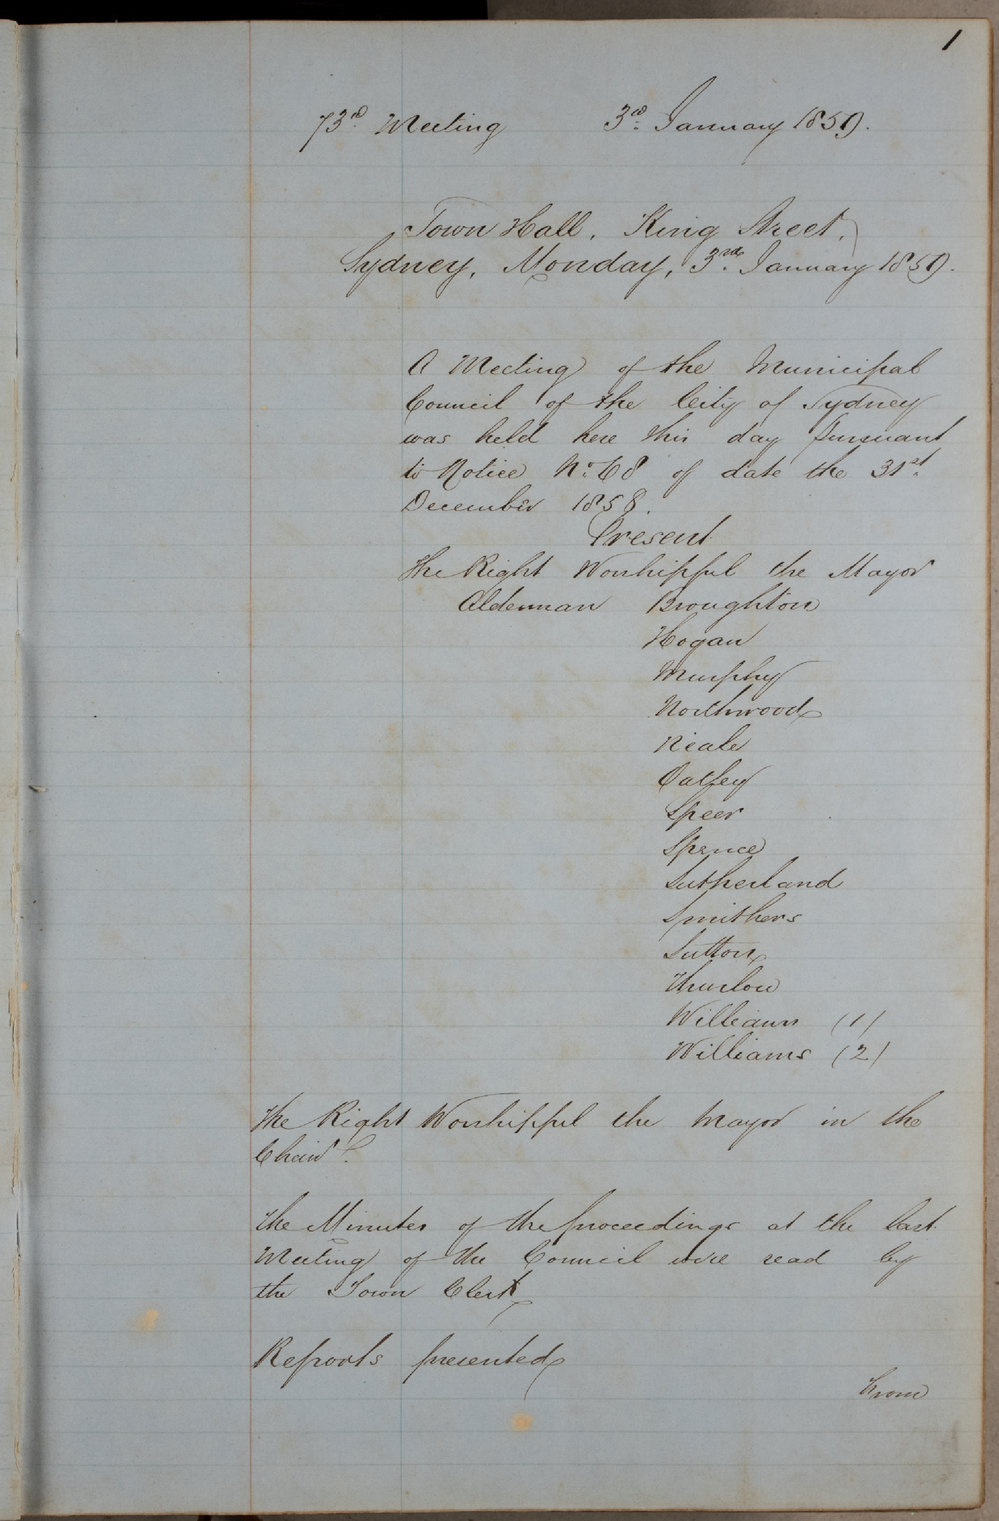 1
73rd Meeting 3rd January 1859.
Town Hall, King Street,
Sydney, Monday, 3rd January 1859.
A Meeting of the Municipal
Council of the City of Sydney
was held here this day pursuant
to Notice No. 68 of date the 31st
December 1858.
Present
The Right Worshipful the Mayor
Alderman Broughton
Hogan
Murphy
Northwood
Neale
Oatley
Speer
Spence
Sutherland
Smithers
Sutton
Thurlow
Williams (1)
Williams (2)
The Right Worshipful the Mayor in the
Chair.
The Minutes of the proceedings at the last
Meeting of the Council were read by
the Town Clerk
Reports presented
From